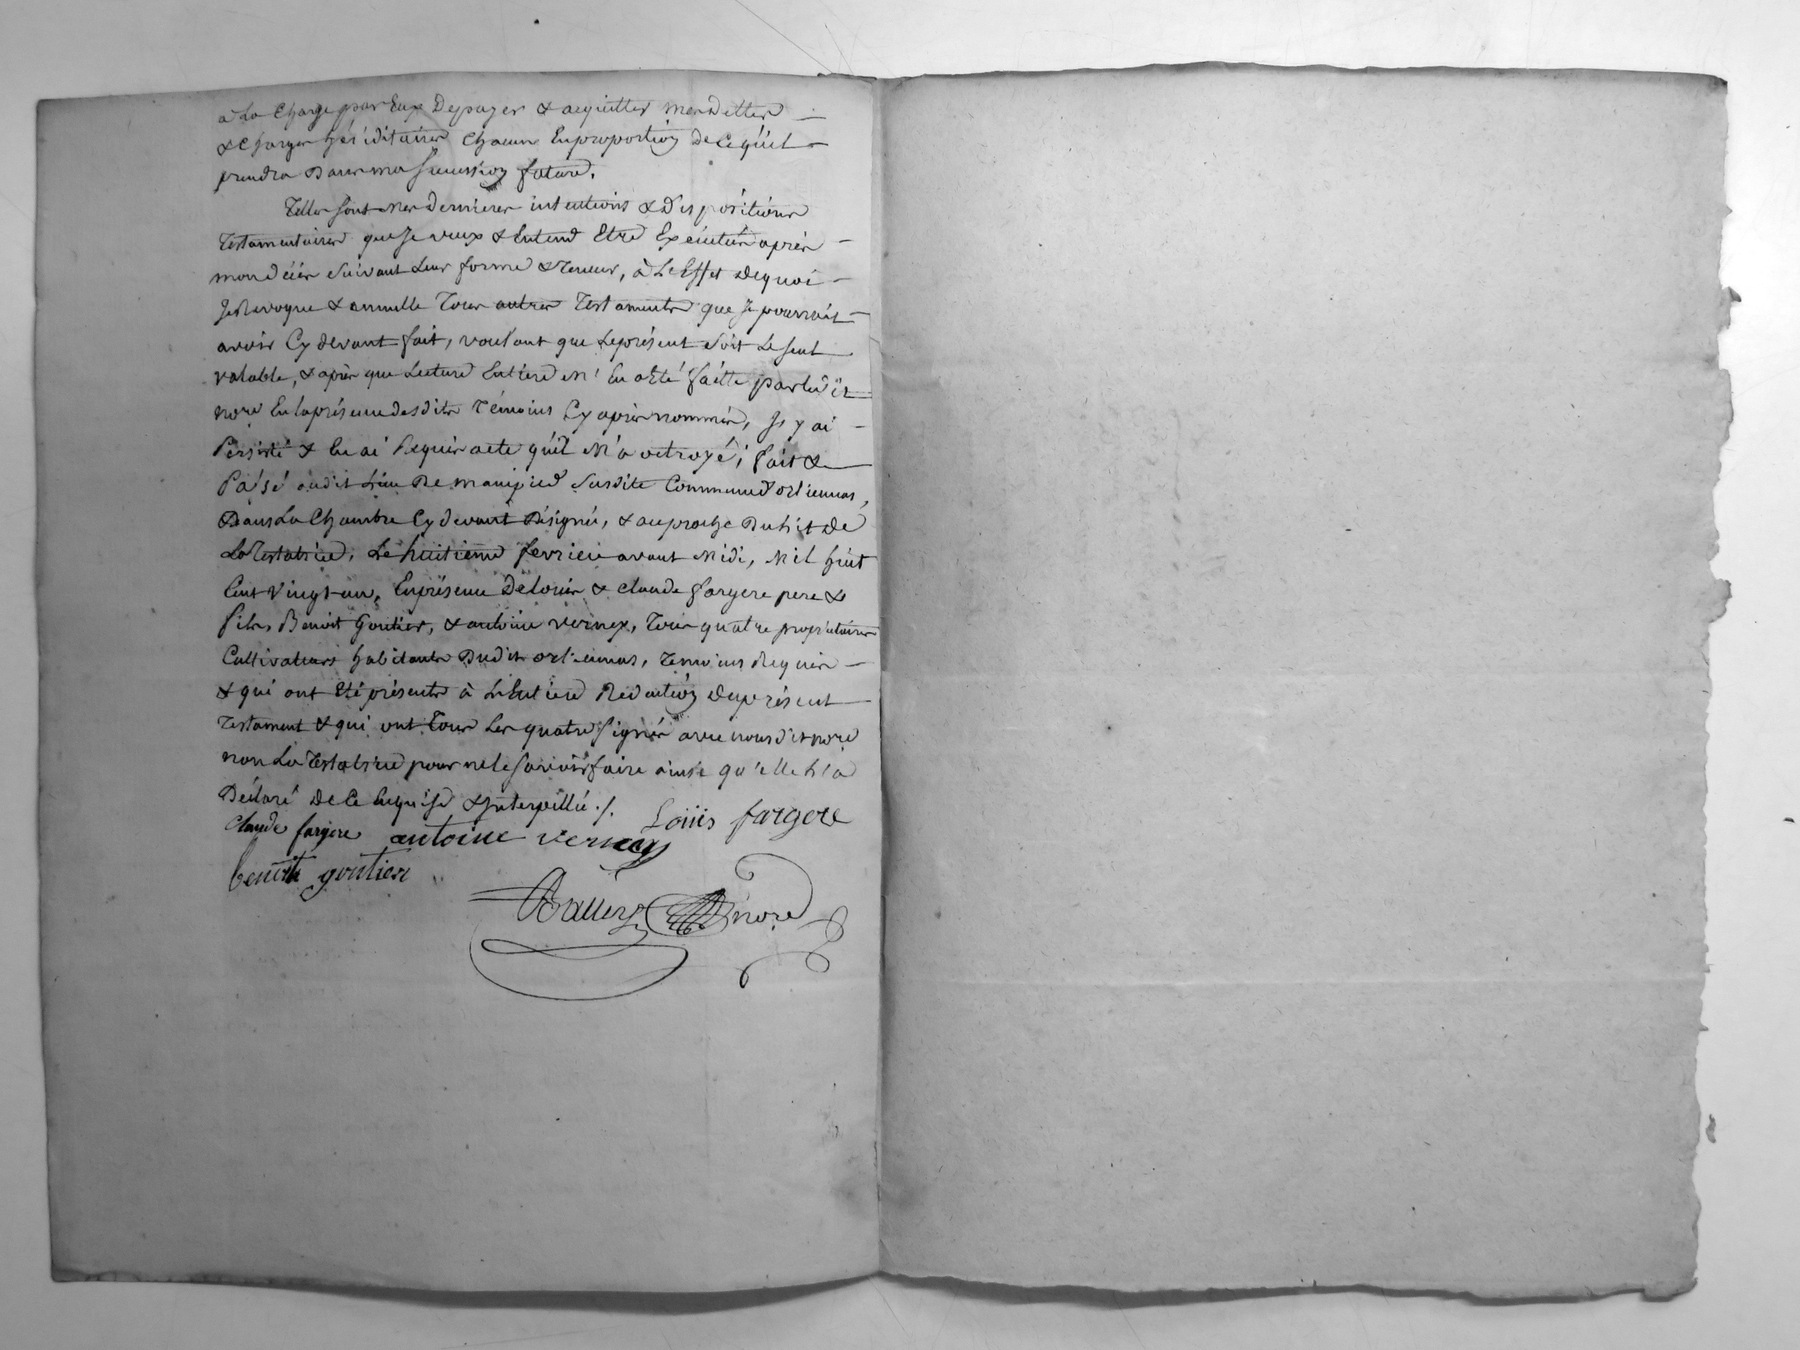 à La Charge par Eux De payer & acquitter mes Dettes
& Charges héréditaires Chacun En proportion De Ce qu'il
prendra Dans ma Succession future.
Telles sont mes dernieres intentions & Dispositions
Testamentaires que Je veux & Entend Etre Exécutées après
mon décès Suivant Leur forme & Teneur, à L'Effet De quoi
Je Revoque & annulle Tous autres Testaments que Je pourrois
avoir Cy devant fait, voulant que Le présent Soit Le Seul
valable, & après que Lecture Entiere M'En a Eté faitte par ledit
nore En la présence desdits Témoins Cy après nommés, J'y ai
Persisté & En ai Requis acte qu'il M'a octroyé; fait &
Passé audit Lieu De Susdite Commune
Dans La Chambre Cy devant Désignée, & au proche Du Lit De
La Testatrice, Le huitieme fevrier avant Midi, Mil huit
Cent vingt un, En présence De Louis & Claude fargere pere &
fils, Benoit Goutier, & antoine vernay, Tous quatre propriétaires
Cultivateurs habitants Dudit Témoins Requis
& qui ont Eté présents à L'Entiere Rédaction du présent
Testament & qui ont Tous Les quatre Signés avec nous dit nore
non La Testatrice pour ne le Savoir faire ainsi qu'elle L'a
Déclaré De Ce Enquise & Interpellée ./.
Louis fargere
Claude fargere antoine vernay
benoit goutier
nore